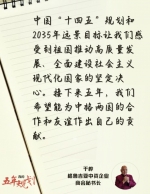 中国“十四五”规划和
2035年远景目标让我们感
受到祖国推动高质量发
展、全面建设社会主义
现代化国家的坚定决
心。接下来五年，我们
希望能为中格两国的合
作和友谊作出自己的贡
献。
于桦
格鲁吉亚中资企业
商会秘书长